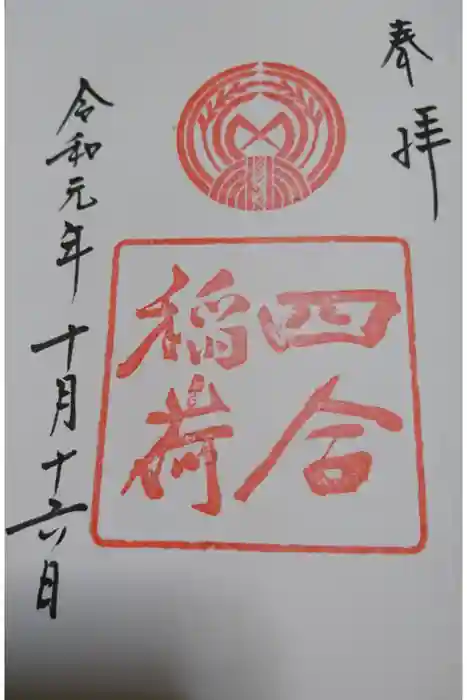 奉拝
四合
稲荷
令和元年十月十六日